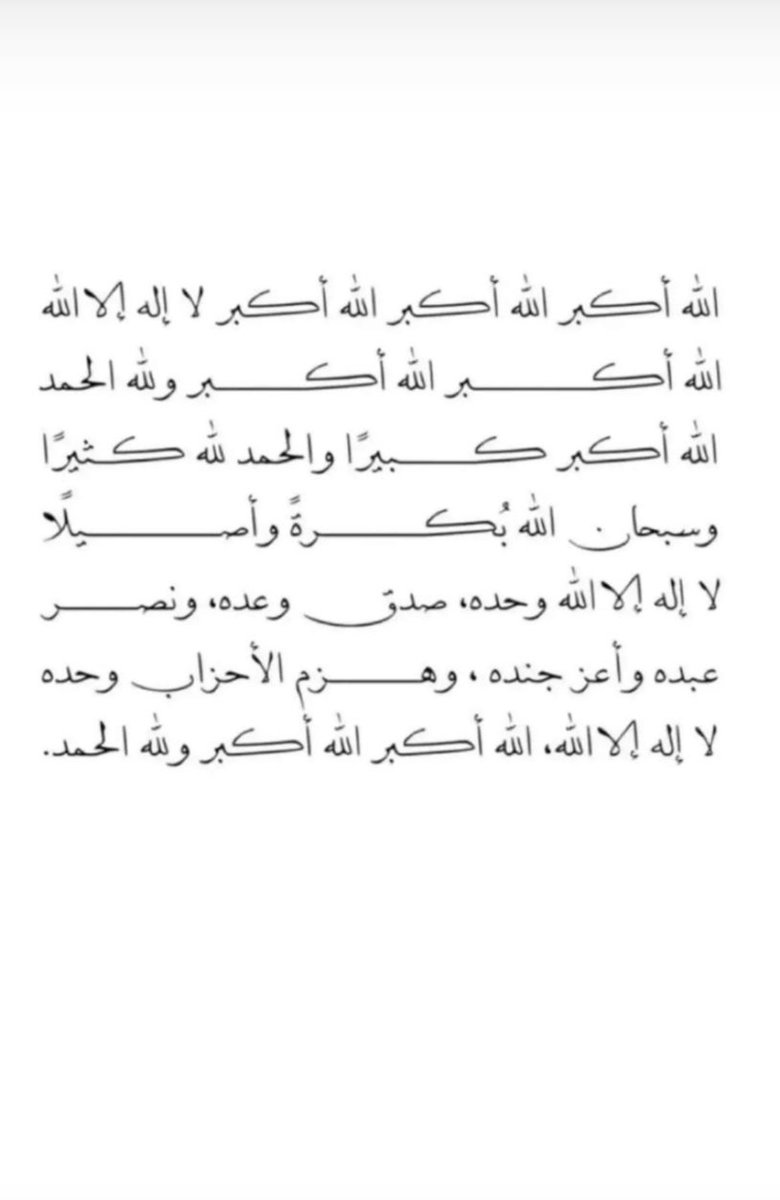 الله أكبر الله أكبر الله أكبر لا إله إلا الله
الله أكبر الله أكبر ولله الحمد
الله أكبر كبيرًا والحمد لله كثيرًا
وسبحان الله بُكرةً وأصيلًا
لا إله إلا الله وحده، صدق وعده، ونصر
عبده وأعز جنده ، وهزم الأحزاب وحده
لا إله إلا الله، الله أكبر الله أكبر ولله الحمد.